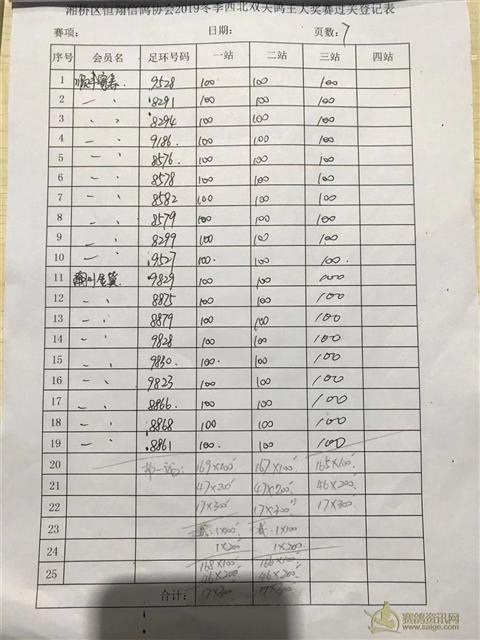 湘桥区恒翔信鸽协会2019冬季西北双关鸽王大奖赛过关登记表
赛项: 日期: 页数: 7
序号 会员名 足环号码 一站 二站 三站 四站
1 9528 100 100 100
2 〃 8291 100 100 100
3 〃 8294 100 100 100
4 〃 9186 100 100 100
5 〃 8576 100 100 100
6 〃 8578 100 100 100
7 〃 8582 100 100 100
8 〃 8579 100 100 100
9 〃 8299 100 100 100
10 〃 9527 100 100 100
11 9829 100 100 100
12 〃 8875 100 100 100
13 〃 8879 100 100 100
14 〃 9828 100 100 100
15 〃 9830 100 100 100
16 〃 9823 100 100 100
17 〃 8866 100 100 100
18 〃 8868 100 100 100
19 〃 8861 100 100 100
20 169×100 167×100 165×100
21 47×200 47×200 46×200
22 17×300 17×300
23 1×100 1×100
24 1×200 1×200
168×100 166×100
25 46×200 46×200
合计: 17×300 17×300
赛鸽资讯网
www.saige.com